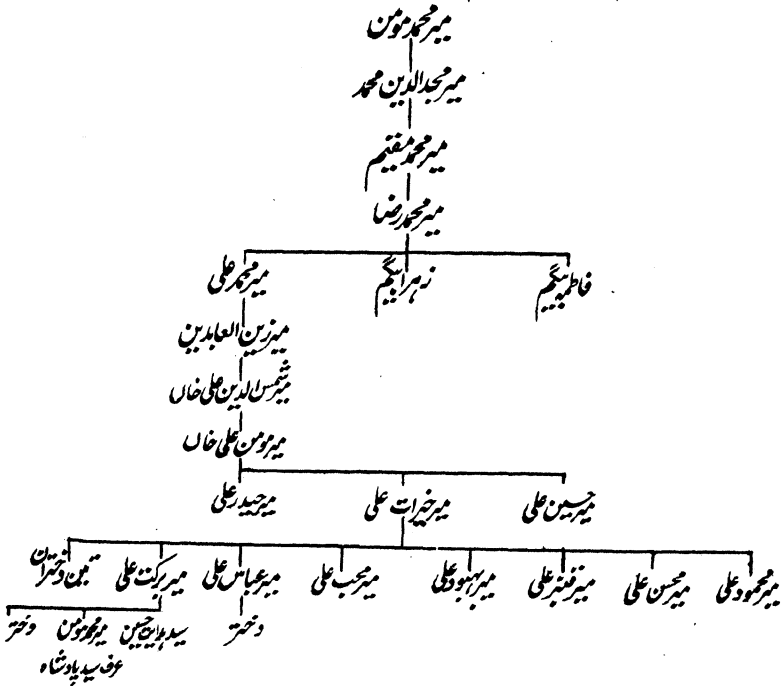 میر محمد مومن
میر مجد الدین محمد
میر محمد مقیم
میر محمد رضا
فاطمہ بیگم زہرا بیگم میر محمد علی
میر زین العابدین
میر شمس الدین علی خاں
میر مومن علی خاں
میر حسین علی میر خیرات علی میر حیدر علی
میر محمود علی میر محسن علی میر قنبر علی میر بہبود علی میر محب علی میر عباس علی میر برکت علی تین دختران
دختر سید حسین میر محمد مومن دختر
عرف سید بادشاہ